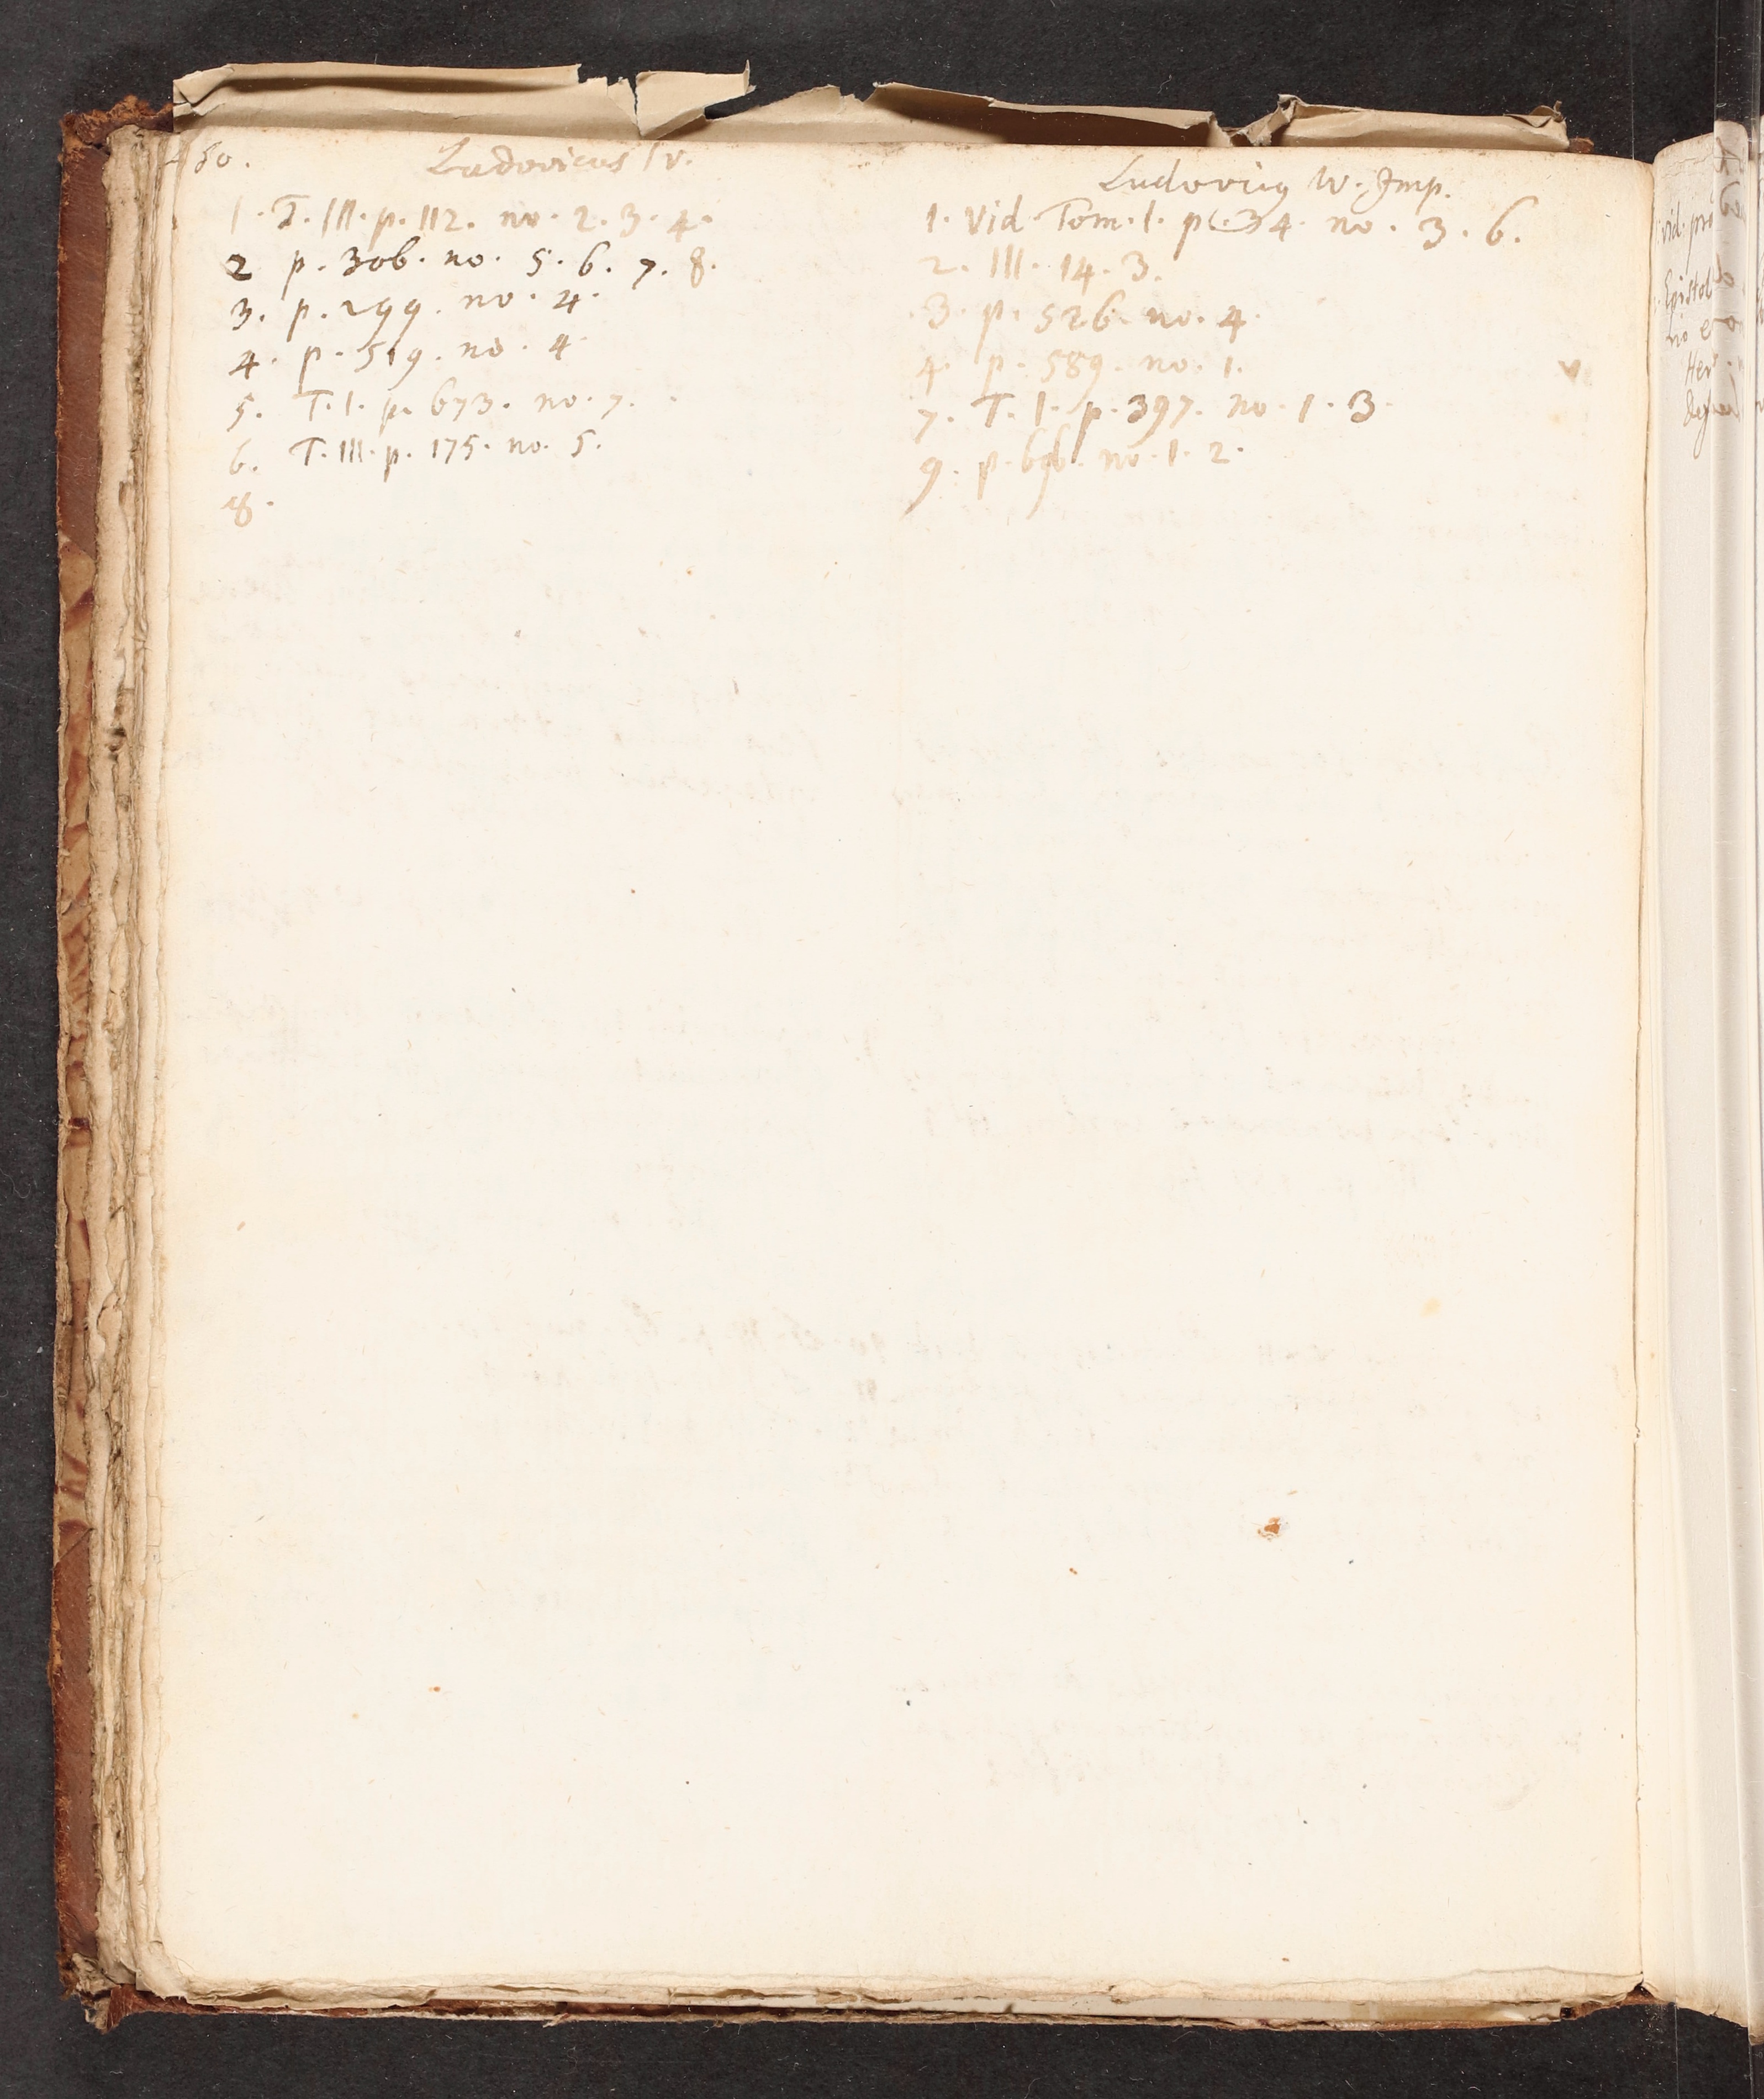 Ludovicus IV.
1. T. III. p. 112. no. 2. 3. 4.
2 p. 306. no. 5. 6. 7. 8.
3. p. 299. no. 4.
4. p. 519. no. 4
5. T. I. p. 673. no. 7.
6. T. III. p. 175. no. 5.
8.
Ludovicus IV. Imp.
1. Vid Tom. I. p. 34. no. 3. 6.
2. III. 14. 3.
3. p. 526. no. 4.
4. p. 589. no. 1.
7. T. I. p. 397. no. 1. 3.
9. p. 696. no. 1. 2.
vid.
Epistol